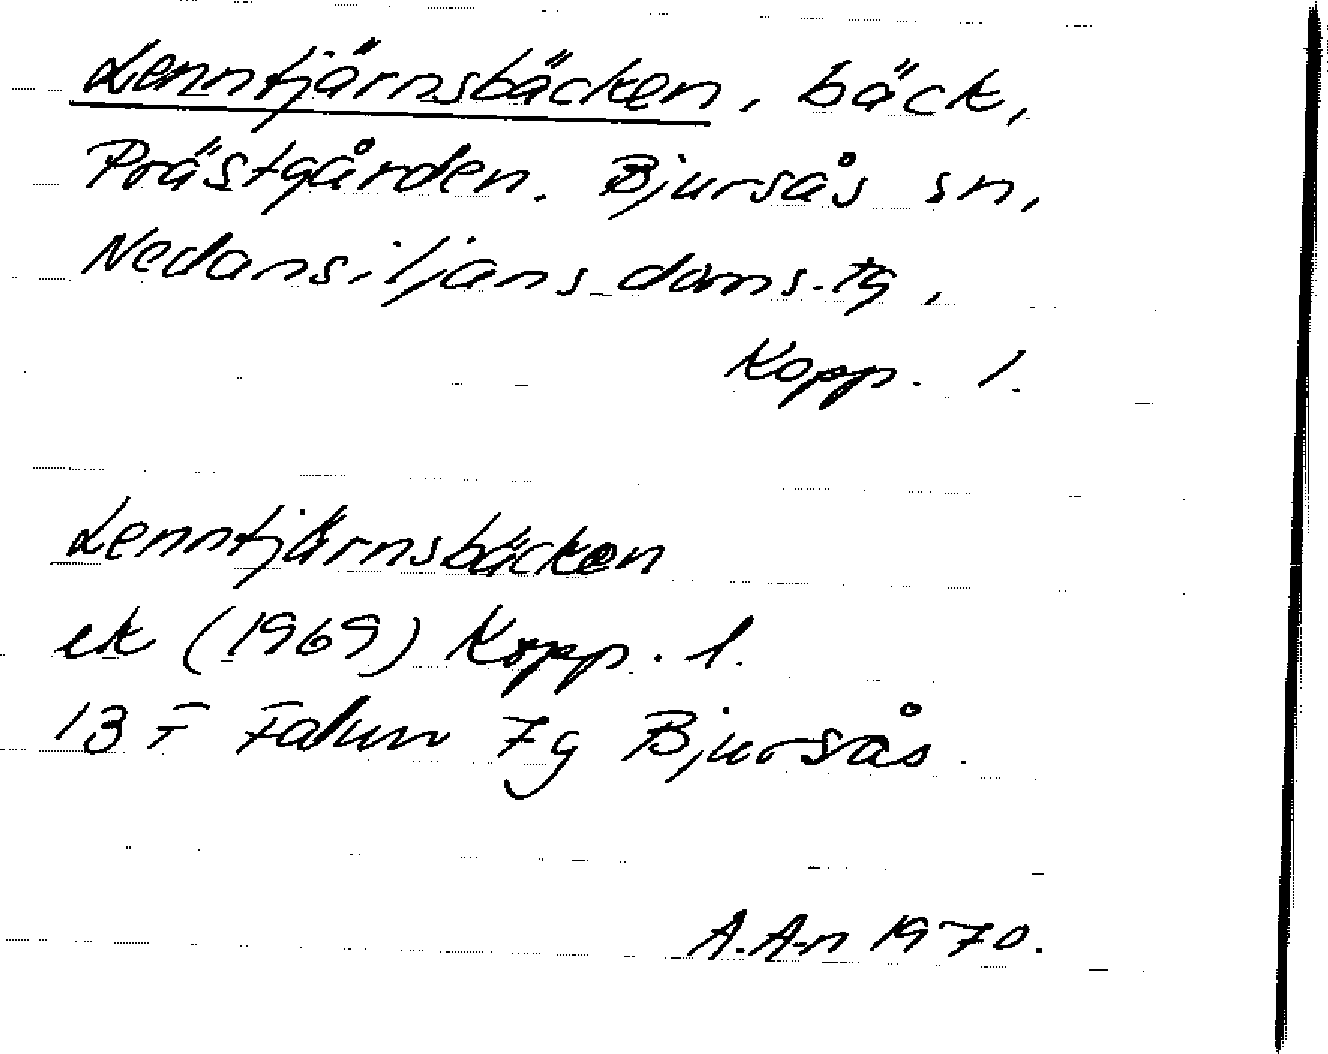 Lenntjärnsbäcken, bäck,
Prästgården. Bjursås sn,
Nedansiljans doms. tg,
Kopp. l.
Lenntjärnsbäcken
ek (1969) Kopp. l.
13 F Falun 7g Bjursås.
A.A-n 1970.